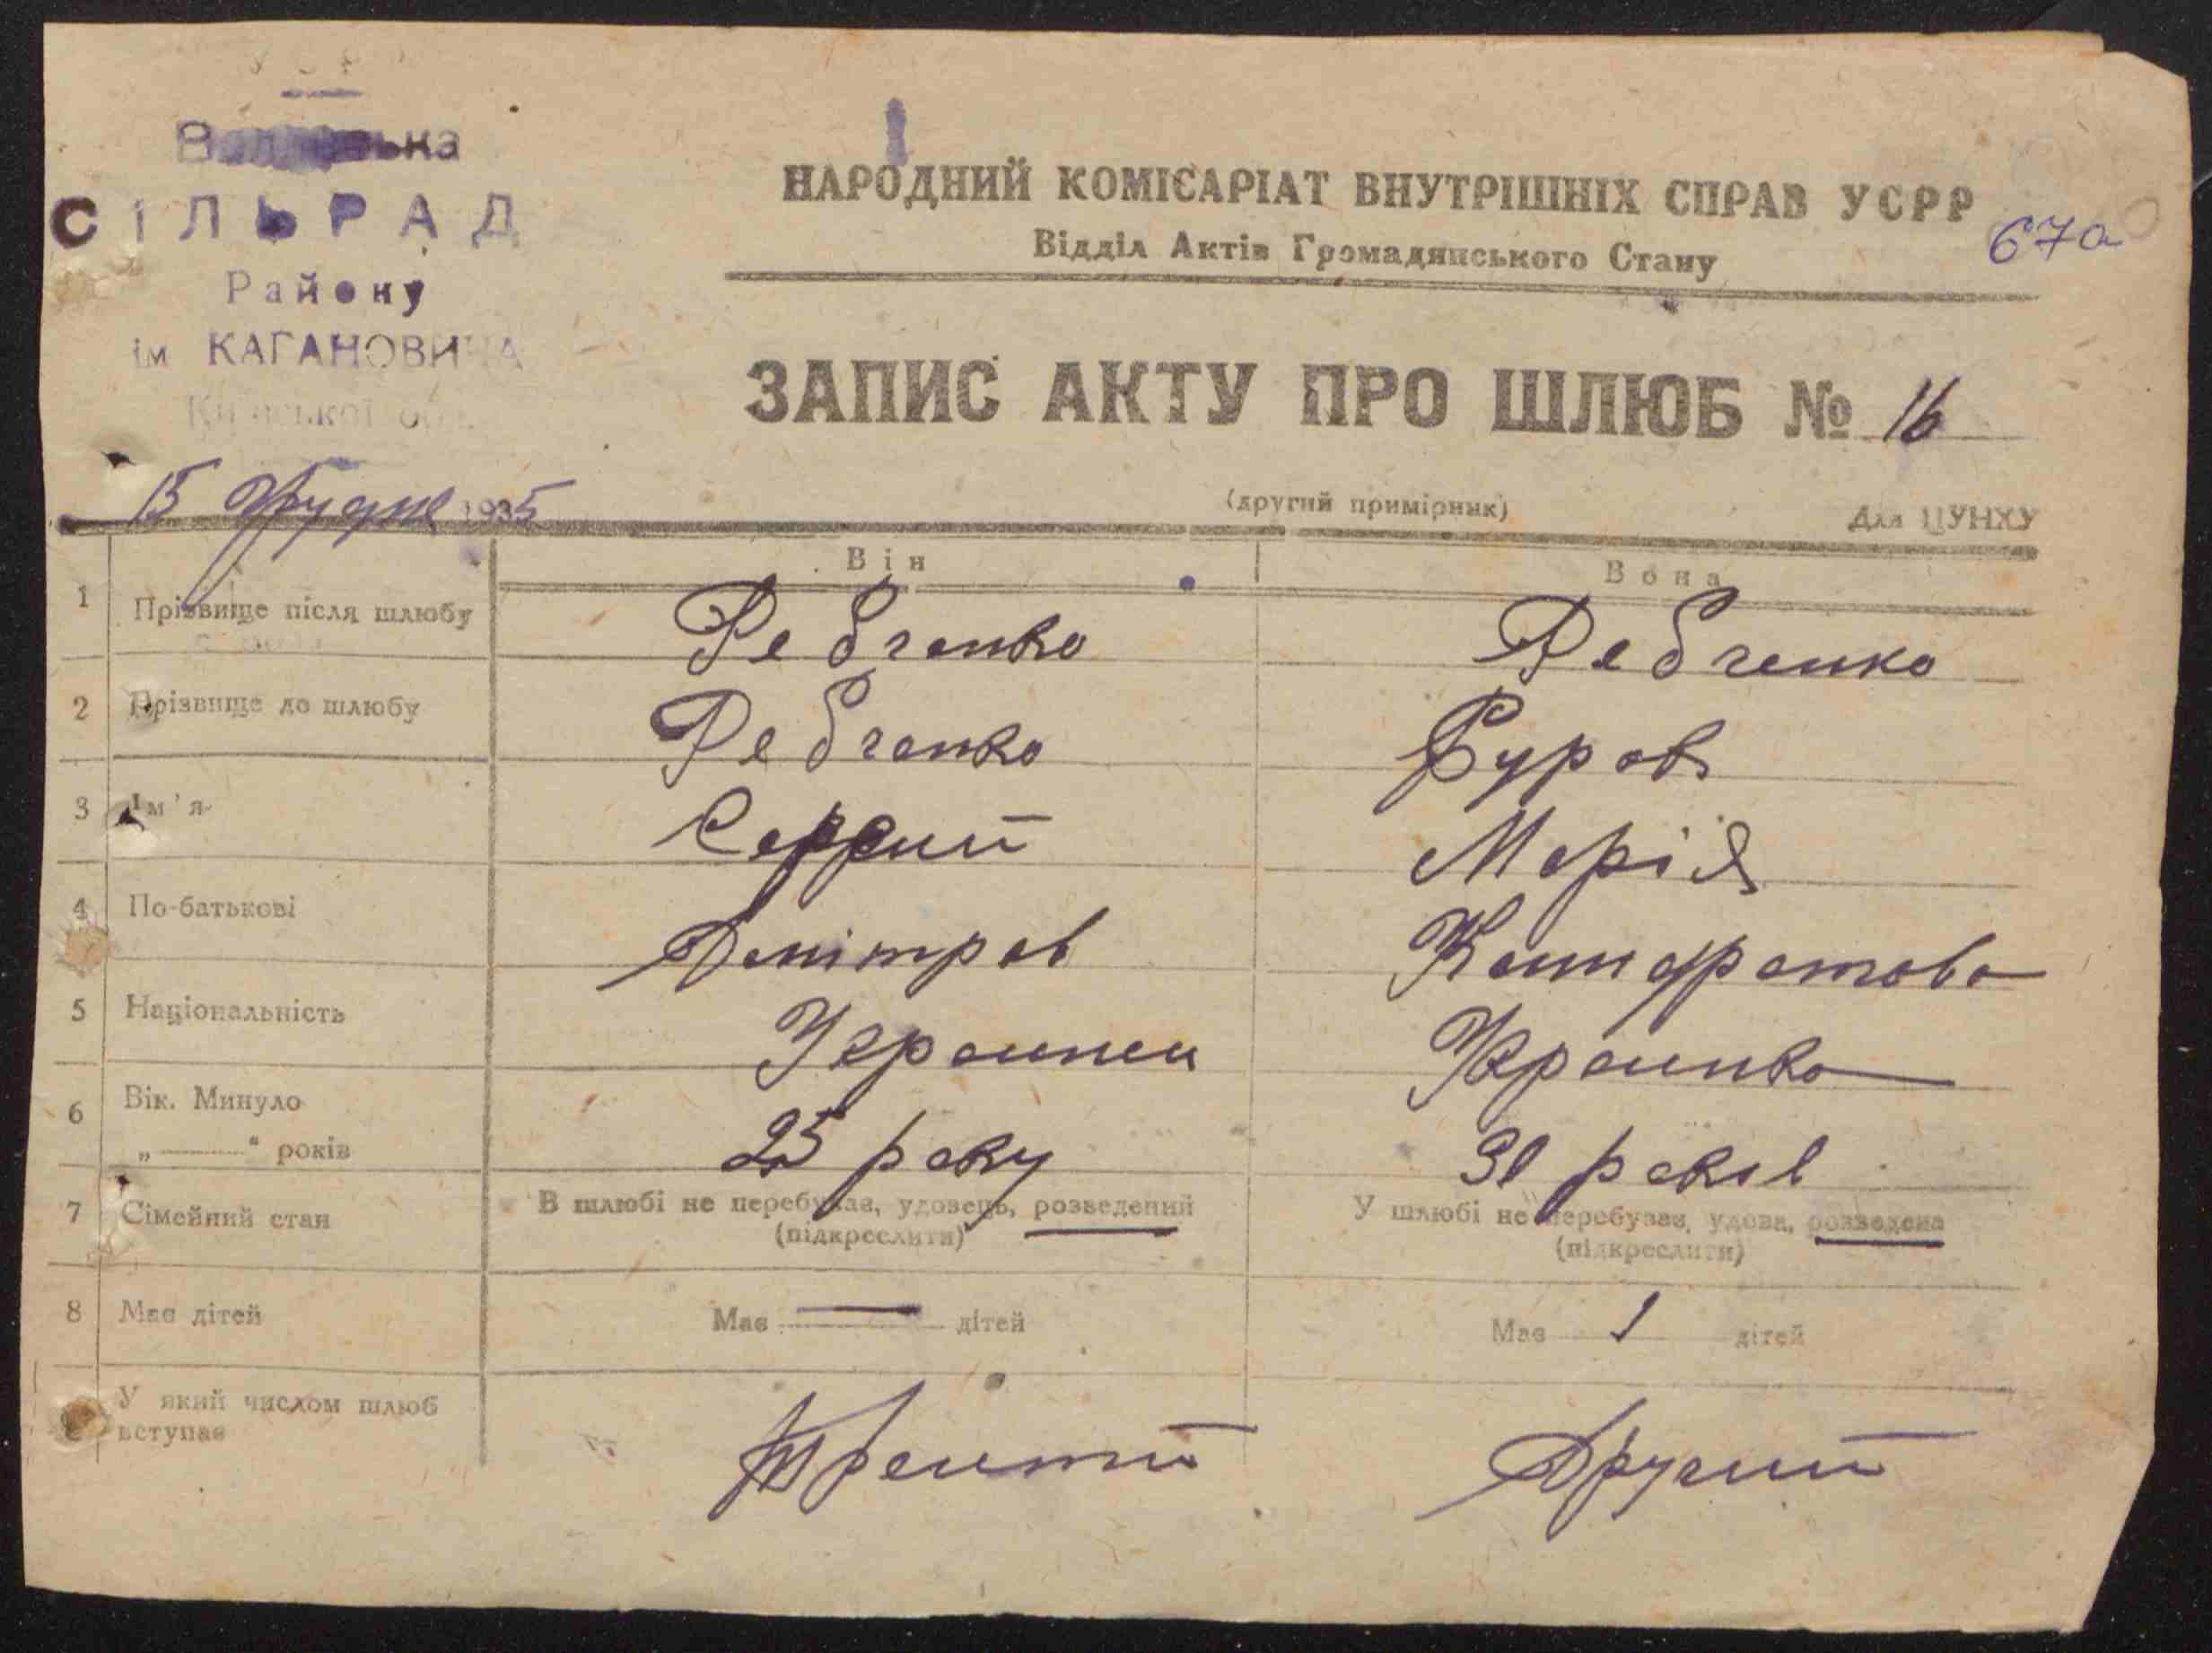 УСРР
СІЛЬРАД
Району
ім КАГАНОВИЧА
Київської обл.
НАРОДНИЙ КОМІСАРІАТ ВНУТРІШНІХ СПРАВ УСРР
Відділ Актів Громадянського Стану
67а
ЗАПИС АКТУ ПРО ШЛЮБ № 16
15 грудня 1935
(другий примірник)
Для ЦУНХУ
Він Вона
1 Прізвище після шлюбу Ребченко Ребченко
2 Прізвище до шлюбу Ребченко Фуров
3 Ім'я Сергий Марія
4 По-батькові Дмітров Кондратова
5 Національність Украинец Украинка
6 Вік. Минуло
„ “ років 25 року 30 років
7 Сімейний стан В шлюбі не перебував, удовець, розведений У шлюбі не перебуває, удова, розведена
(підкреслити) (підкреслити)
8 Має дітей Має — дітей Має 1 дітей
У який числом шлюб
вступає Третий Другий